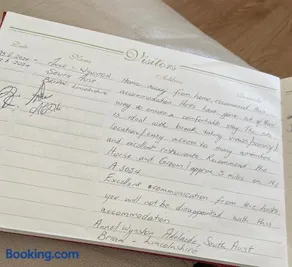 Visitors
Date
Name
Address
Home away from home, recommend this
accommodation. Hosts have gone out of their
way to ensure a comfortable stay. The site
is ideal with breath taking views,
location/easy access to many amenities
and excellent restaurants. Recommend the
Horse and Groom (approx 5 miles on the
A
Excellent communication from the hosts,
you will not be disappointed with this
accommodation
Anne Wynston Adelaide, South Aust
Brian - Lincolnshire
Anne Wynston
South Aust
Brian Lincolnshire
Booking.com